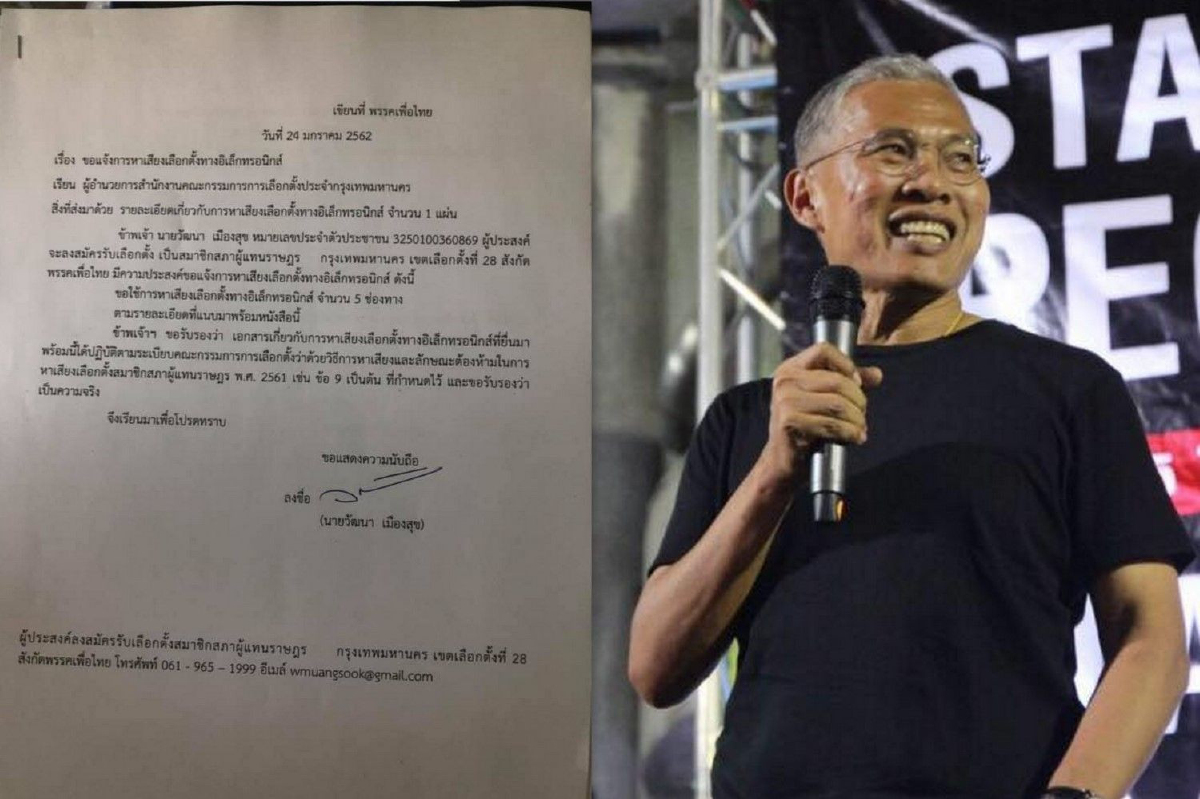 เขียนที่ พรรคเพื่อไทย
วันที่ 24 มกราคม 2562
เรื่อง ขอแจ้งการหาเสียงเลือกตั้งทางอิเล็กทรอนิกส์
เรียน ผู้อำนวยการสำนักงานคณะกรรมการการเลือกตั้งประจำกรุงเทพมหานคร
สิ่งที่ส่งมาด้วย รายละเอียดเกี่ยวกับการหาเสียงเลือกตั้งทางอิเล็กทรอนิกส์ จำนวน 1 แผ่น
ข้าพเจ้า นายวัฒนา เมืองสุข หมายเลขประจำตัวประชาชน 3250100360869 ผู้ประสงค์
จะลงสมัครรับเลือกตั้ง เป็นสมาชิกสภาผู้แทนราษฎร กรุงเทพมหานคร เขตเลือกตั้งที่ 28 สังกัด
พรรคเพื่อไทย มีความประสงค์ขอแจ้งการหาเสียงเลือกตั้งทางอิเล็กทรอนิกส์ ดังนี้
ขอใช้การหาเสียงเลือกตั้งทางอิเล็กทรอนิกส์ จำนวน 5 ช่องทาง
ตามรายละเอียดที่แนบมาพร้อมหนังสือนี้
ข้าพเจ้าฯ ขอรับรองว่า เอกสารเกี่ยวกับการหาเสียงเลือกตั้งทางอิเล็กทรอนิกส์ที่ยื่นมา
พร้อมนี้ได้ปฏิบัติตามระเบียบคณะกรรมการการเลือกตั้งว่าด้วยวิธีการหาเสียงและลักษณะต้องห้ามในการ
หาเสียงเลือกตั้งสมาชิกสภาผู้แทนราษฎร พ.ศ. 2561 เช่น ข้อ 9 เป็นต้น ที่กำหนดไว้ และขอรับรองว่า
เป็นความจริง
จึงเรียนมาเพื่อโปรดทราบ
ขอแสดงความนับถือ
ลงชื่อ
(นายวัฒนา เมืองสุข)
ผู้ประสงค์ลงสมัครรับเลือกตั้งสมาชิกสภาผู้แทนราษฎร กรุงเทพมหานคร เขตเลือกตั้งที่ 28
สังกัดพรรคเพื่อไทย โทรศัพท์ 061 - 965 – 1999 อีเมล์ wmuangsook@gmail.com
STA
RE